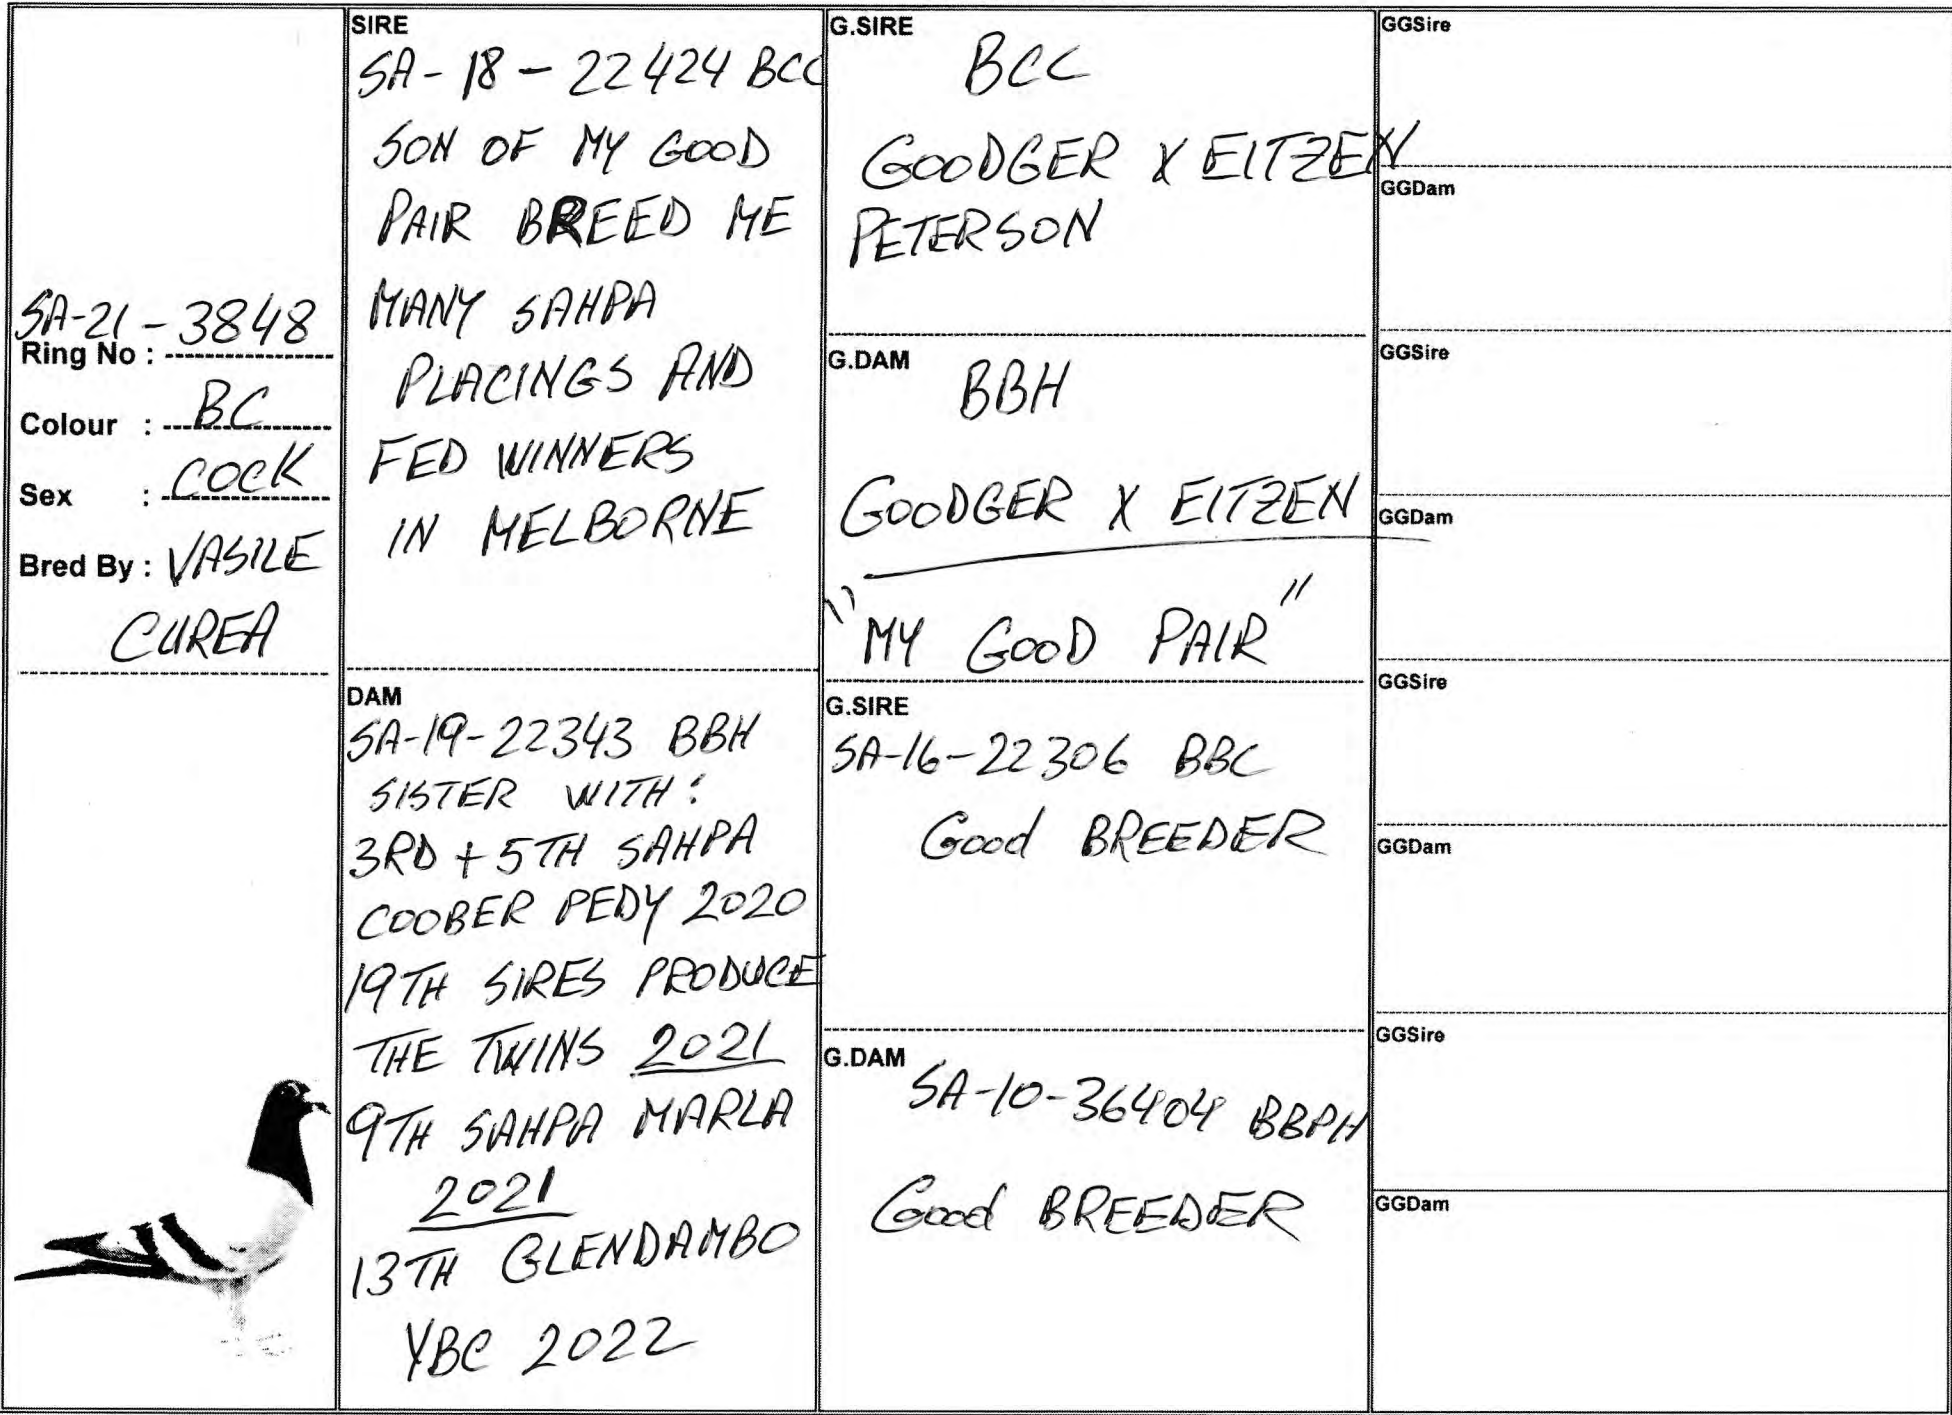 SA-21-3848
Ring No :
Colour : BC
Sex : COCK
Bred By : VASILE
CUREA
SIRE
SA-18-22424 BCC
SON OF MY GOOD
PAIR BREED ME
MANY SAHPA
PLACINGS AND
FED WINNERS
IN MELBORNE
DAM
SA-19-22343 BBH
SISTER WITH:
3RD + 5TH SAHPA
COOBER PEDY 2020
19TH SIRES PRODUCE
THE TWINS 2021
9TH SAHPA MARLA
2021
13TH GLENDAMBO
YBC 2022
G.SIRE
BCC
GOODGER X EITZEN
PETERSON
G.DAM
BBH
GOODGER X EITZEN
"MY GOOD PAIR"
G.SIRE
SA-16-22306 BBC
Good BREEDER
G.DAM
SA-10-36404 BBPH
Good BREEDER
GGSire
GGDam
GGSire
GGDam
GGSire
GGDam
GGSire
GGDam